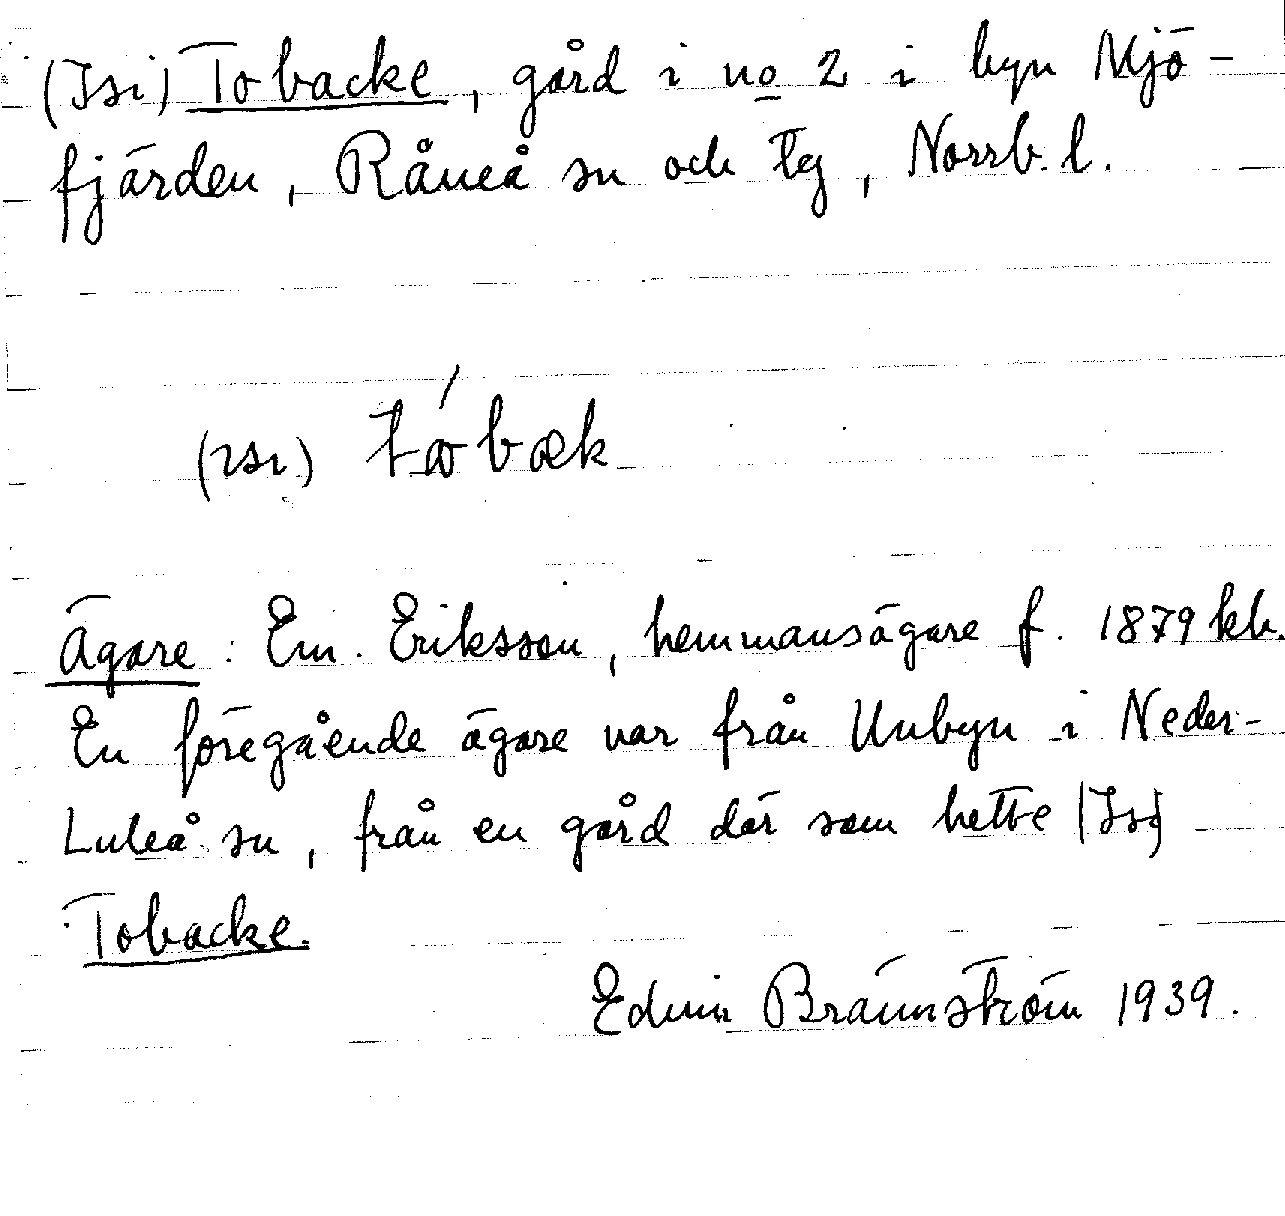 (Isi) Tobacke, gård i no 2 i byn Mjö-
fjärden, Råneå sn och tg, Norrb. l.
(ısı) tǿbæk
Ägare: Em. Eriksson, hemmansägare f. 1879 kb.
En föregående ägare var från Unbyn i Neder-
Luleå sn, från en gård där som hette (Isi)
Tobacke.
Edvin Brännström 1939.